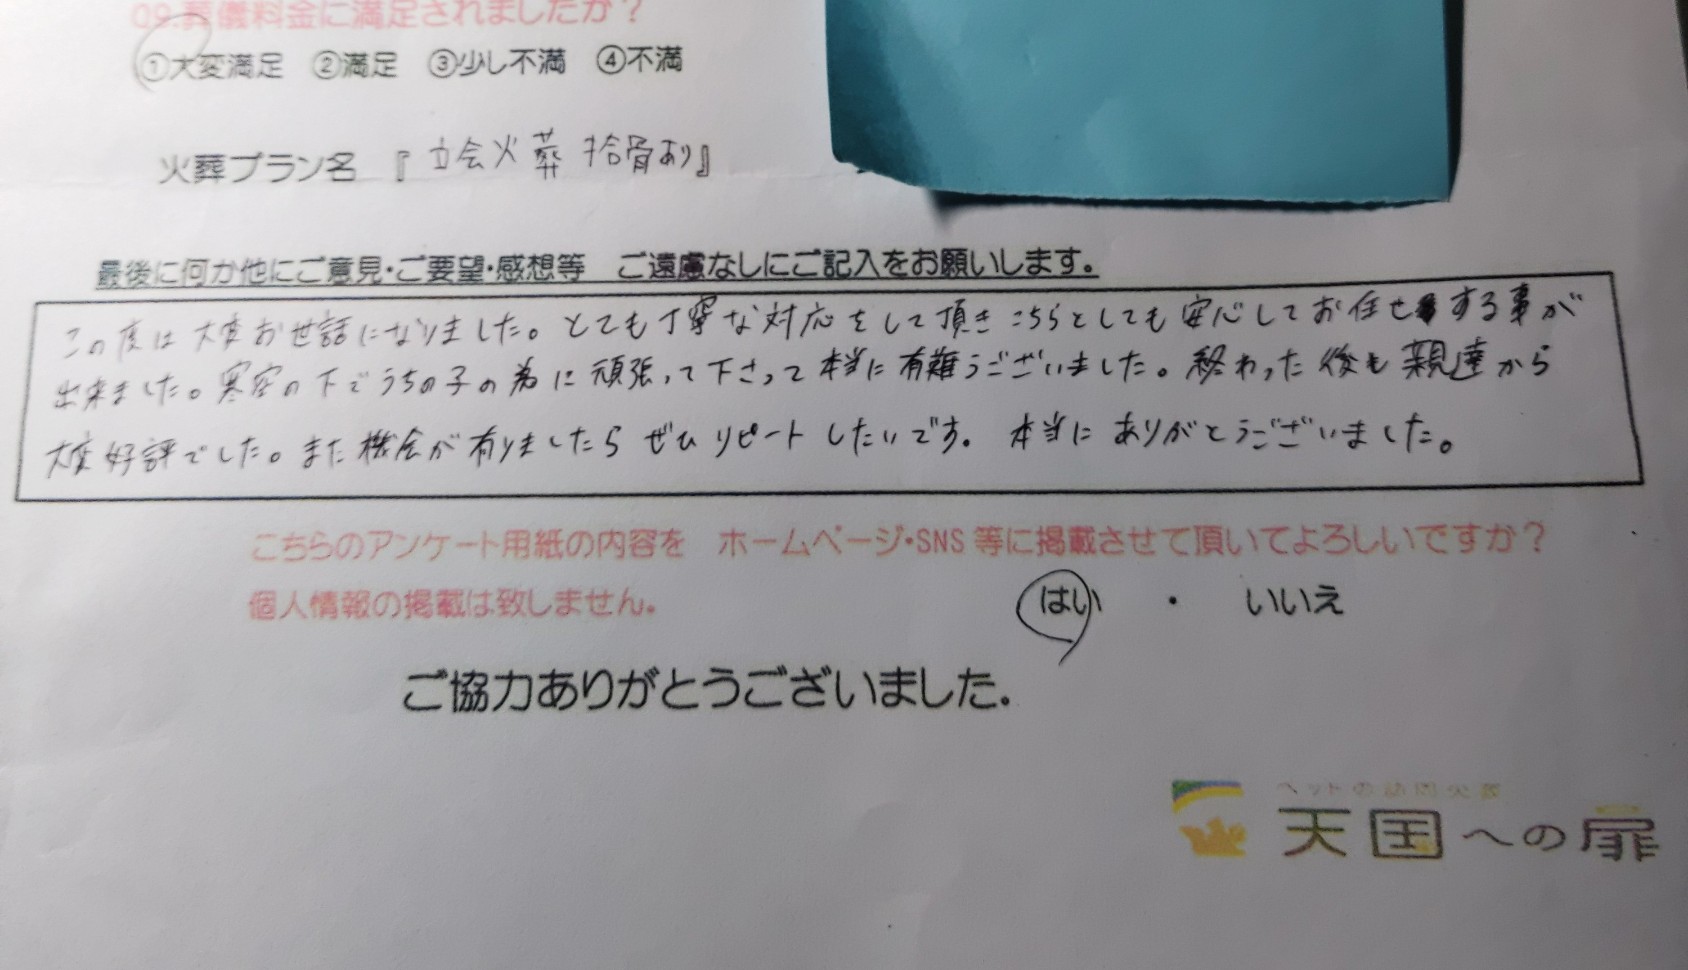 Q9.葬儀料金に満足されましたか？
①大変満足 ②満足 ③少し不満 ④不満
火葬プラン名 『立会火葬 拾骨あり』
最後に何か他にご意見・ご要望・感想等 ご遠慮なしにご記入をお願いします。
この度は大変お世話になりました。とても丁寧な対応をして頂きこちらとしても安心してお任せする事が
出来ました。寒空の下でうちの子の為に頑張って下さって本当に有難うございました。終わった後も親達から
大変好評でした。また機会が有りましたらぜひリピートしたいです。本当にありがとうございました。
こちらのアンケート用紙の内容を ホームページ・SNS等に掲載させて頂いてよろしいですか？
個人情報の掲載は致しません。 はい ・ いいえ
ご協力ありがとうございました。
ペットの訪問火葬
天国への扉